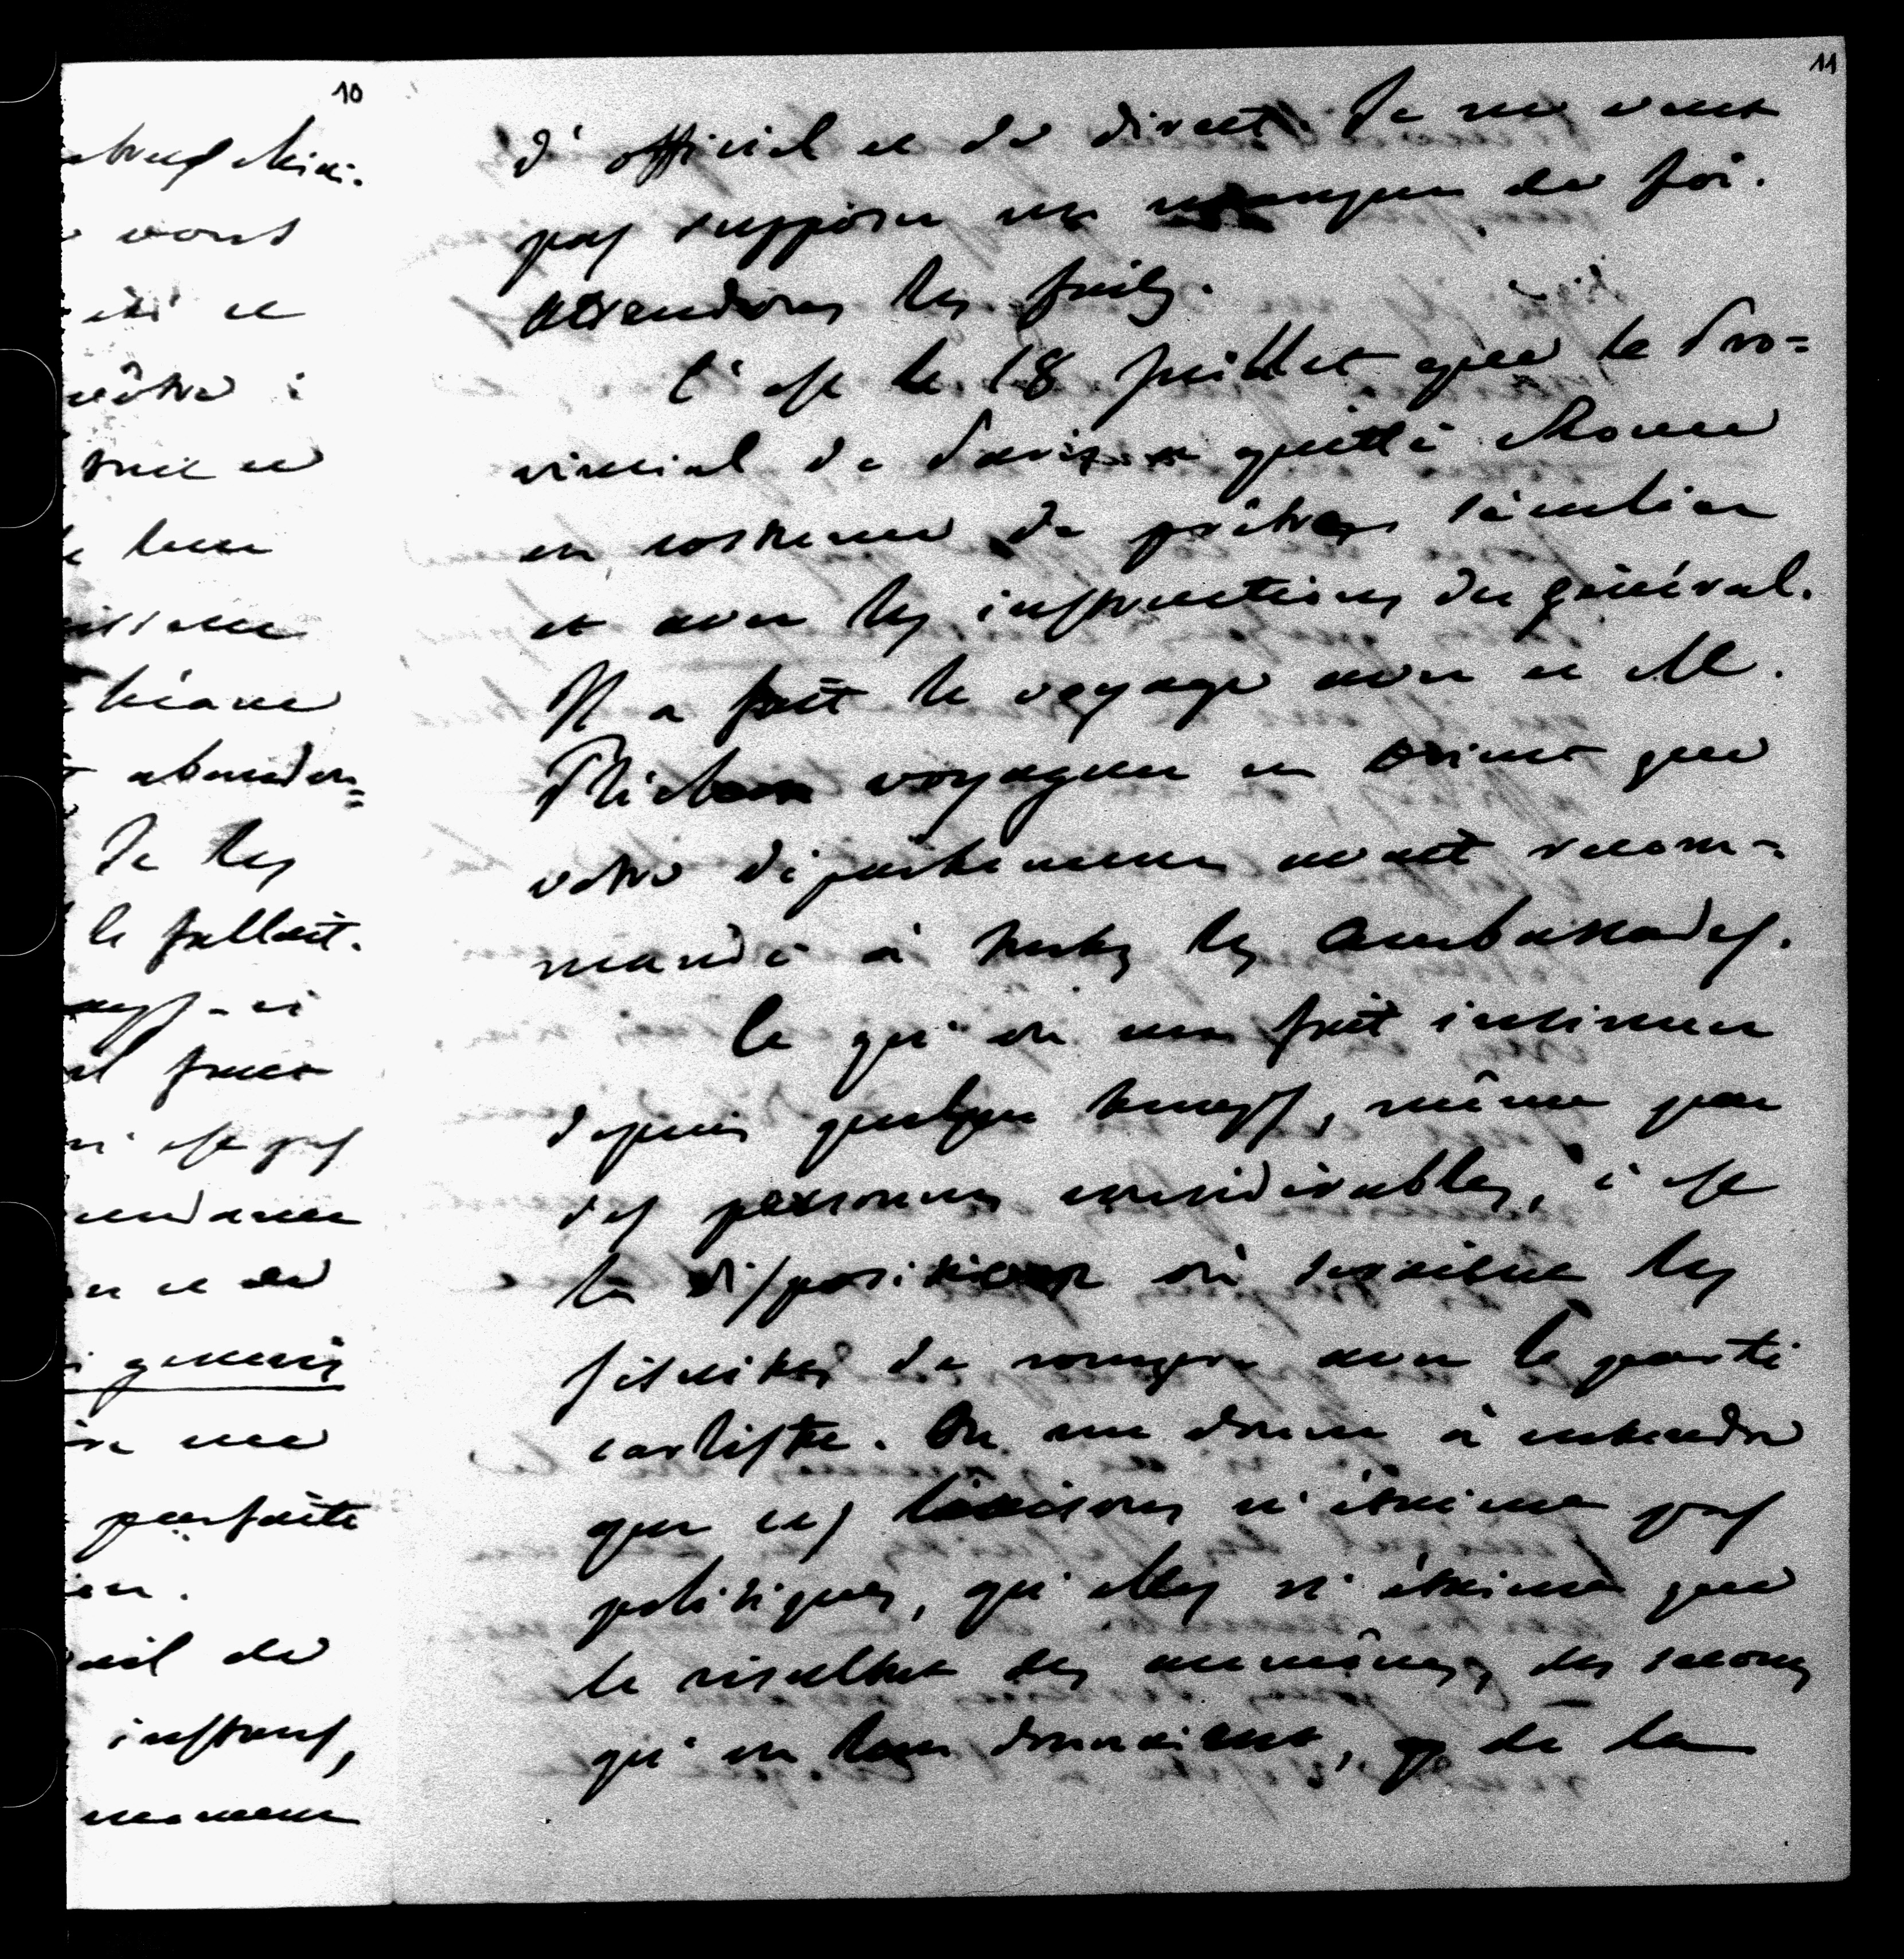 10
vont
été et
nôtre :
leur
abandon=
Je les
le fallait.
il faut
n'est pas
et de
generis
parfaite
instans,
moment
11
d'officiel et de direct. Je ne veux
pas supposer un manque de foi.
Attendons les faits.
C'est le 18 Juillet que le Pro=
vincial de Paris a quitté Rome
en costume de prêtre séculier
et avec les instructions du général.
Il a fait le voyage avec ce M.
voyageur en Orient que
votre département avait recom=
mandé à toutes les Ambassades.
Ce qu'on me fait insinuer
depuis quelque temps, même par
des personnes considérables, c'est
la disposition où seraient les
jésuites de rompre avec le parti
carliste. On me donne à entendre
que ces liaisons n'étaient pas
politiques, qu'elles n'étaient que
le résultat des aumônes, des secours
qu'on leur donnaient, de la